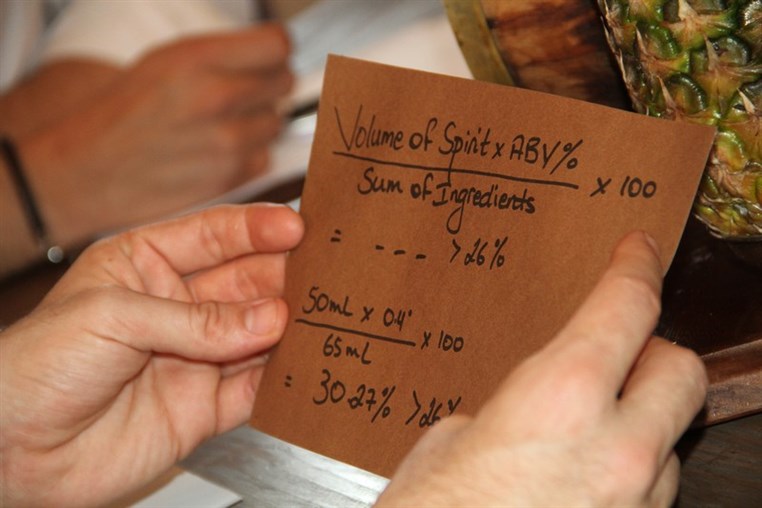 Volume of Spirit x ABV%
Sum of Ingredients
x 100
= --- >26%
50mL x 0.4
65mL
x 100
= 30.27% >26%